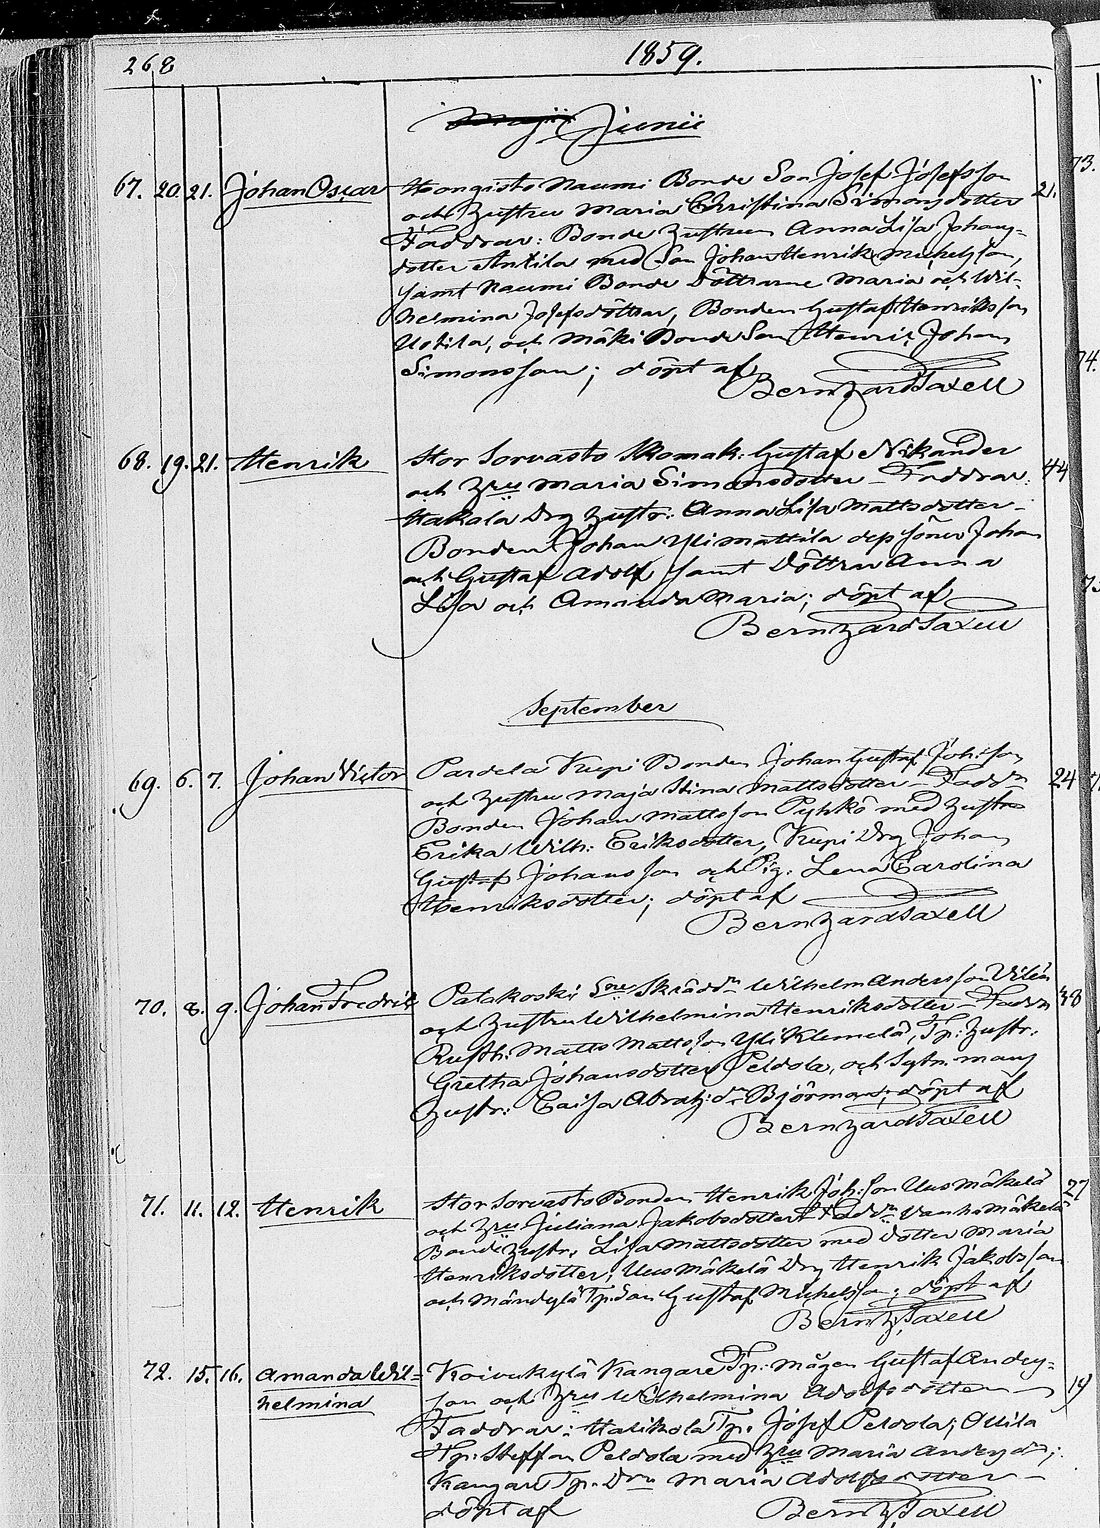 268
1859.
Majii Junii
67. 20. 21. Johan Oscar Koongisto Naumi Bonde Son Josef Josefsson 21.
och Hustru Maria Christina Simonsdotter
Faddrar: Bonde Hustrun Anna Lisa Johans-
dotter Antila med Son Johan Henrik Michelsson,
samt Naumi Bonde Döttrarne Maria och Wil-
helmina Josefsdöttrar, Bonden Gustaf Henriksson
Uotila, och Mäki Bonde Son Henric Johan
Simonsson; döpt af
Bernhard Taxell
68. 19. 21. Henrik Stor Sorvasto Skomak: Gustaf Nikander 44
och Hru Maria Simonsdotter - Faddrar:
Hakola Drg Hustr: Anna Lisa Mattsdotter -
Bonden Johan Ylimattila dess söner Johan
och Gustaf Adolf samt Döttrar Anna
Lisa och Amanda Maria; döpt af
Bernhard Taxell
September
69. 6. 7. Johan Victor Pardela Krupi Bonden Johan Gustaf Joh:sson 24
och Hustru Maja Stina Mattsdotter - Faddr
Bonden Johan Mattsson Pyhkö med Hustru
Erika Wilh: Eriksdotter, Krupi Drg Johan
Gustaf Johansson och Pig: Lena Carolina
Henriksdotter; döpt af
Bernhard Taxell
70. 8. 9. Johan Fredrik Palakoski Skrädd Wilhelm Andersson Vilén 38
och Hustru Wilhelmina Henriksdotter - Faddr
Rusth: Matts Mattsson Yli Klemelä, Tp: Hustr:
Gretha Johansdotter Peldola, och
Hustr: Caisa Abrah:dr Björman; döpt af
Bernhard Taxell
71. 11. 12. Henrik Stor Sorvasto Bonden Henrik Joh:son Uusmäkelä 27
och Hru Juliana Jakobsdotter Faddr Vanha Mäkelä
Bonde Hustr: Lisa Mattsdotter med dotter Maria
Henriksdotter, Uusmäkelä Drg Henrik Jakobsson
och Mändylä Tp: Son Gustaf Michelsson; döpt af
Bernh: Taxell
72. 15. 16. Amanda Wil- Koivukylä Kangare Tp: Mågen Gustaf Anders- 19
helmina son och Hru Wilhelmina Adolfsdotter
Faddrar: Halikola Tp. Josef Peldola; Ollila
Tp: Steffan Peldola med Hru Maria Andersdr;
Kangare Tp. Dr Maria Adolfsdotter -
döpt af Bernh: Taxell
73.
74.